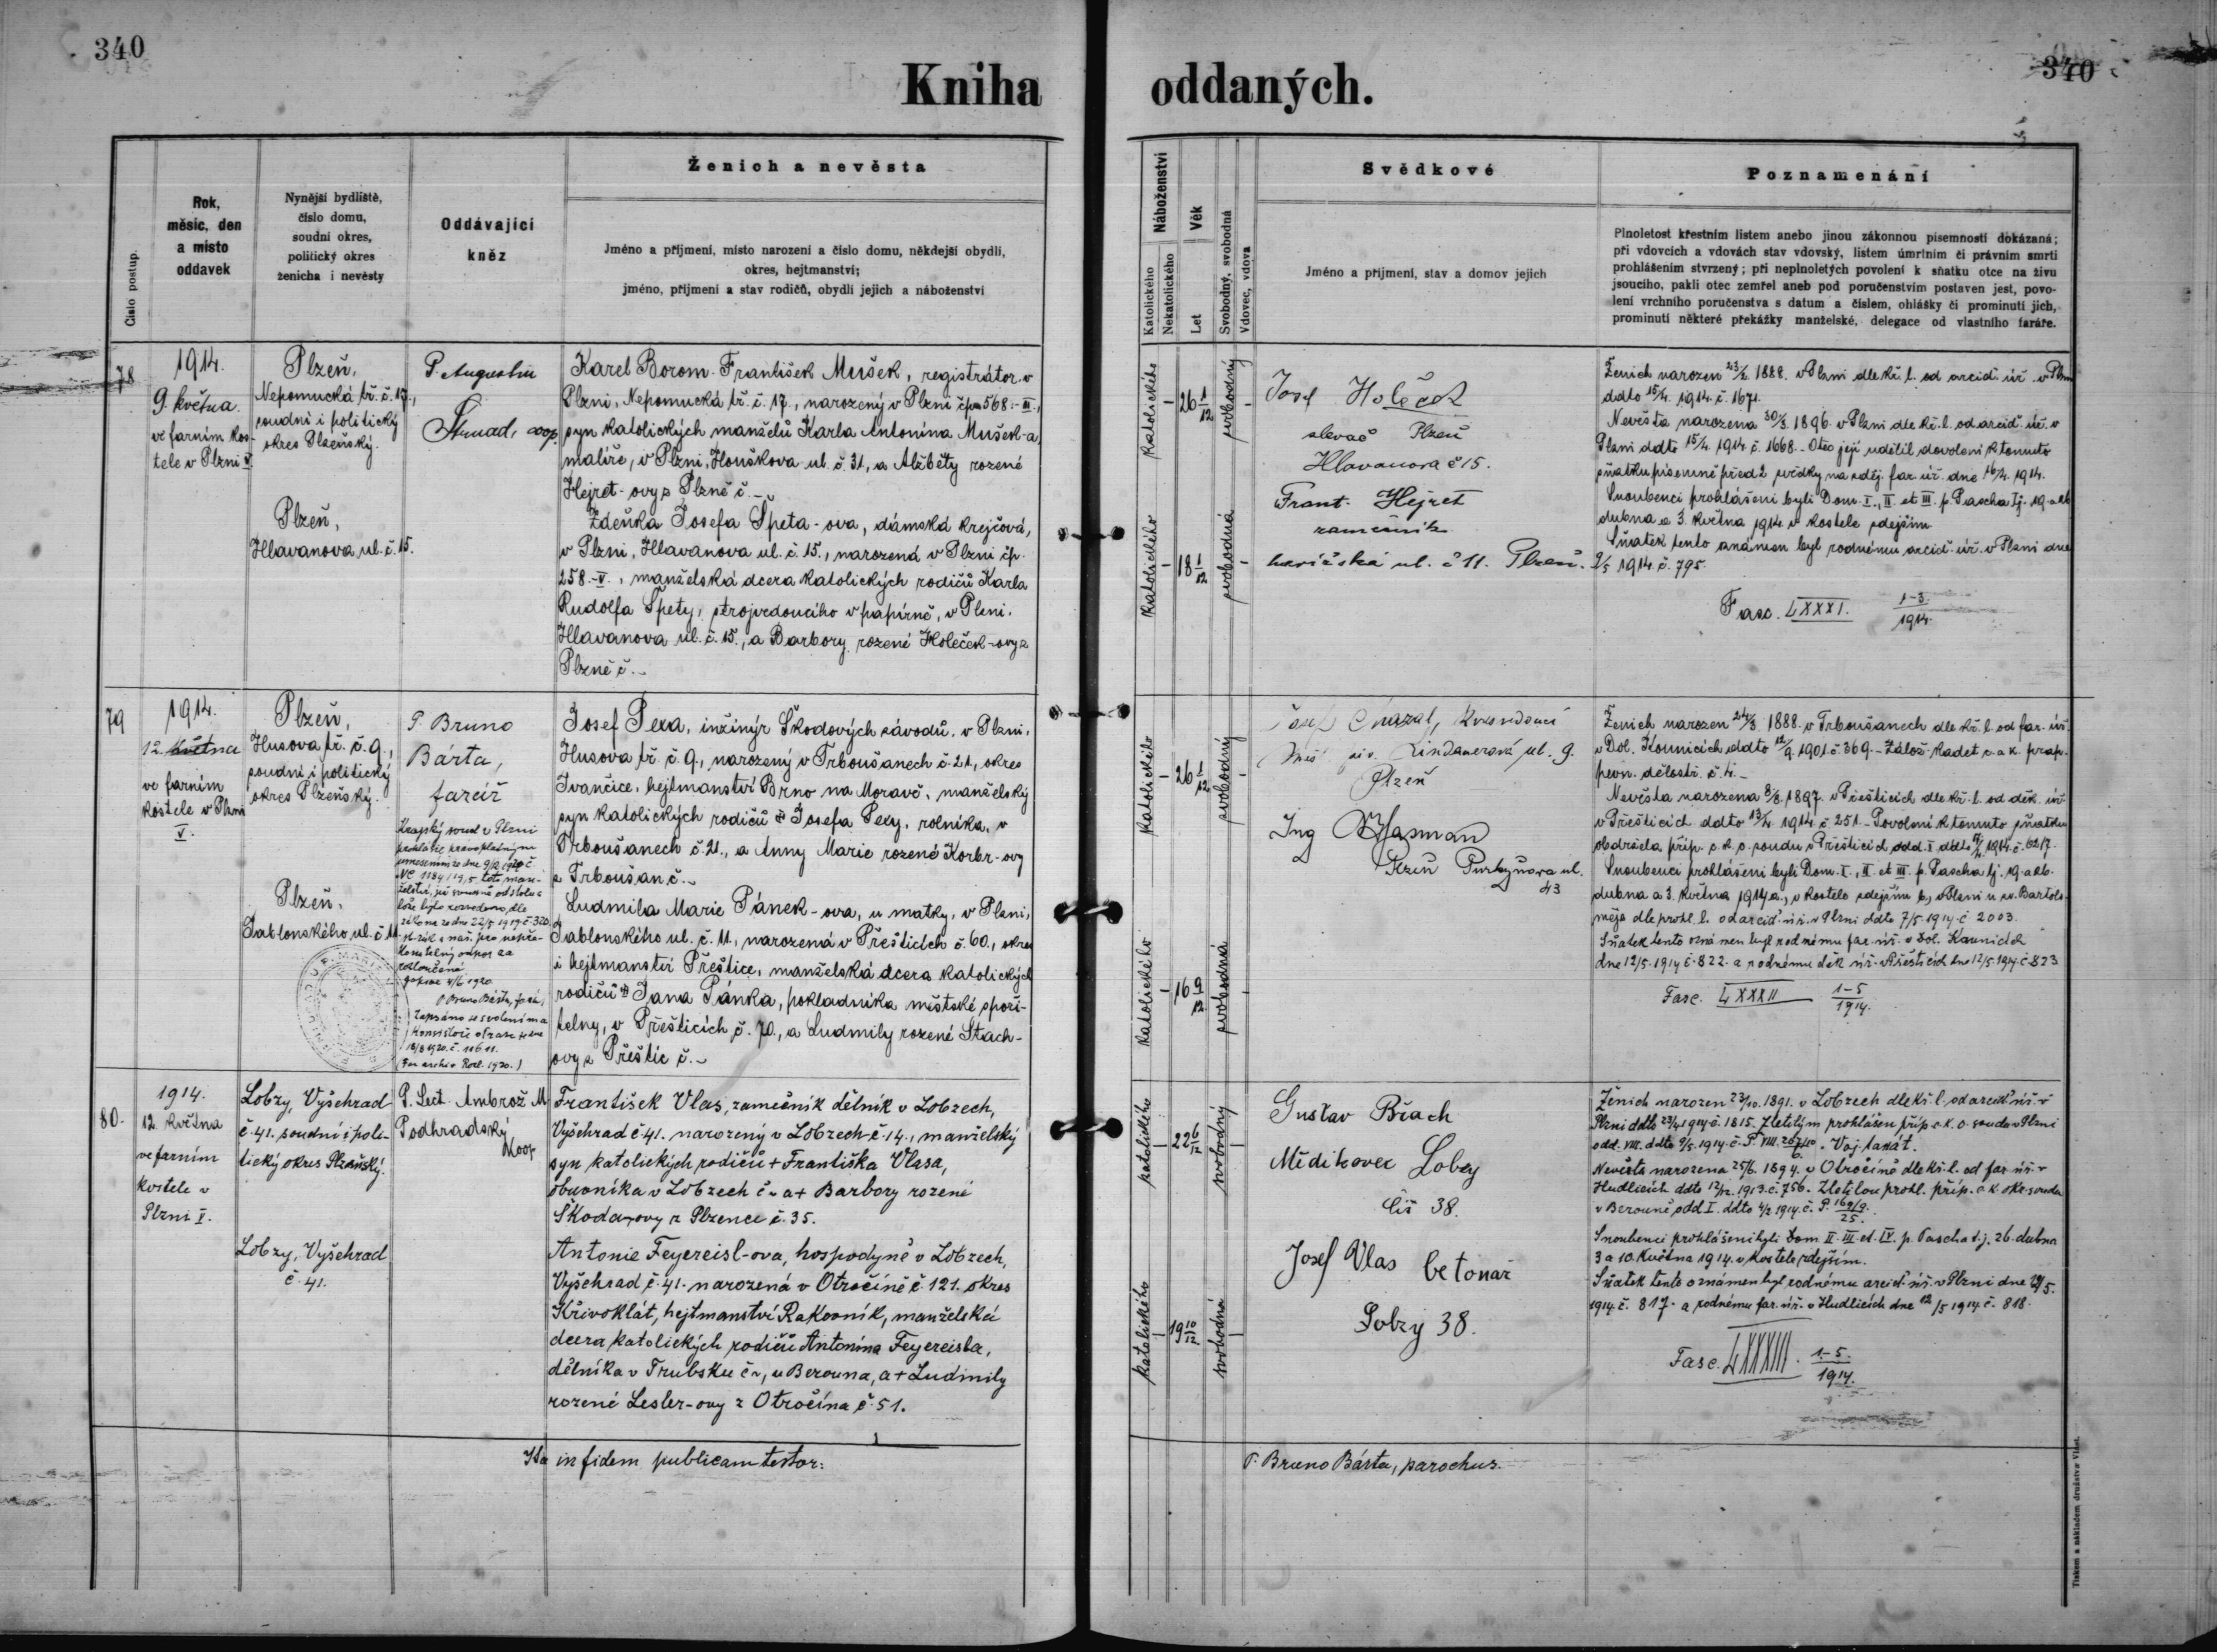 340
Kniha
Číslo postup.
Rok,
měsíc, den
a místo
oddavek
Nynější bydliště,
číslo domu,
soudní okres,
politický okres
ženicha i nevěsty
Oddávající
kněz
Ženich a nevěsta
Jméno a příjmení, místo narození a číslo domu, někdejší obydlí,
okres, hejtmanství;
jméno, příjmení a stav rodičů, obydlí jejich a náboženství
78
1914.
9. května.
ve farním kos-
tele v Plzni V.
Plzeň,
Nepomucká tř. č. 17.,
soudní i politický
okres Plzeňský.
Plzeň,
Hlavanova ul. č. 15.
P. Augustin
Strnad, coop.
Karel Borom. František Mušek, registrátor v
Plzni, Nepomucká tř. č. 17., narozený v Plzni čp. 568.-III.,
syn katolických manželů Karla Antonína Mušek-a,
malíře, v Plzni, Houškova ul. č. 31, a Alžběty rozené
Hejret-ovy z Plzně č. -
Zdeňka Josefa Špeta-ova, dámská krejčová,
v Plzni, Hlavanova ul. č. 15., narozená v Plzni čp.
258.-V., manželská dcera katolických rodičů Karla
Rudolfa Špety, strojvedoucího v papírně, v Plzni.
Hlavanova ul. č. 15., a Barbory rozené Holeček-ovy z
Plzně č. -
79
1914.
12. května
ve farním
kostele v Plzni
V.
Plzeň,
Husova tř. č. 9.,
soudní i politický
okres Plzeňský.
Plzeň,
Jablonského ul. č. 11.
P. Bruno
Bárta,
farář
Krajský soud v Plzni
prohlásil pravoplatným
usnesením ze dne 9/2 1920 č.
toto man-
želství, již soudně od stolu a
lože bylo rozvedeno, dle
zákona ze dne 22/5 1919 č. 320
sb. zák. a nař. pro nepře-
konatelný odpor za
rozloučené
4/6 1920.
P. Bruno Bárta, farář,
Zapsáno se svolením
konsistoře ze dne
1920. č. 11611.
Josef Pexa, inžinýr Škodových závodů, v Plzni,
Husova tř. č. 9., narozený v Trboušanech č. 21, okres
Ivančice, hejtmanství Brno na Moravě, manželský
syn katolických rodičů Josefa Pexy, rolníka, v
Trboušanech č. 21., a Anny Marie rozené Korbr-ovy
z Trboušan č. -
Ludmila Marie Pánek-ova, u matky, v Plzni,
Jablonského ul. č. 11., narozená v Přešticích č. 60., okres
i hejtmanství Přeštice, manželská dcera katolických
rodičů Jana Pánka, pokladníka městské spoři-
telny, v Přešticích č. 70., a Ludmily rozené Stach-
ovy z Přeštic č. -
80.
1914.
12 května
ve farním
kostele v
Plzni V.
Lobzy, Vyšehrad
č. 41. soudní i poli-
tický okres Plzeňský.
Lobzy, Vyšehrad
č. 41.
P. Lect. Ambrož M
Podhradský
koop.
František Vlas, zámečník dělník v Lobzech,
Vyšehrad č 41. narozený v Lobzech č. 14., manželský
syn katolických rodičů + Františka Vlasa,
obuvníka v Lobzech č - a + Barbory rozené
Škoda-ovy z Plzence č. 35.
Antonie Feyereisl-ova, hospodyně v Lobzech,
Vyšehrad č. 41. narozená v Otročíně č 121. okres
Křivoklát, hejtmanství Rakovník, manželská
dcera katolických rodičů Antonína Feyereisla,
dělníka v Trubsku č -, u Berouna, a + Ludmily
rozené Lesler-ovy z Otročína č. 51.
Ita in fidem publicam testor:
340
oddaných.
Náboženství
Katolického
Nekatolického
Věk
Let
Svobodný, svobodná
Vdovec, vdova
Svědkové
Jméno a příjmení, stav a domov jejich
Poznamenání
Plnoletost křestním listem anebo jinou zákonnou písemností dokázaná;
při vdovcích a vdovách stav vdovský, listem úmrtním či právním smrti
prohlášením stvrzený; při neplnoletých povolení k sňatku otce na živu
jsoucího, pakli otec zemřel aneb pod poručenstvím postaven jest, povo-
lení vrchního poručenstva s datum a číslem, ohlášky či prominutí jich,
prominutí některé překážky manželské, delegace od vlastního faráře.
katolického
26 1/12
svobodný
katolického
18 1/12
svobodná
Josef Holeček
slevač Plzeň
Hlavanova č 15.
Frant. Hejret
zámečník
ul. č 11. Plzeň.
Ženich narozen 1888. v Plzni dle kř. l. od arcid. úř. v Plzni
ddto 15/4. 1914. č. 1671.
Nevěsta narozena 30/3. 1896. v Plzni dle kř. l. od arcid. úř. v
Plzni ddto 15/4. 1914. č. 1668. - Otec její udělil dovolení k tomuto
sňatku písemně před 2 svědky na zděj. far. úř. dne 16/4. 1914.
Snoubenci prohlášeni byli Dom. I., II. et III. p. Pascha tj. 19. a 26.
dubna a 3. května 1914 v kostele zdejším.
Sňatek tento oznámen byl rodnému arcid. úř. v Plzni dne
9/5 1914. č. 795.
Fasc. LXXXI. 1-3/1914.
katolického
26 1/12
svobodný
katolického
16 9/12
svobodná
Lindauerova ul. 9.
Plzeň
Ing Hasman
Plzeň Purkyňova ul.
43
Ženich narozen 24/3. 1888. v Trboušanech dle kř. l. od far. úř.
v Dol. Kounicích ddto 12/9. 1901. č. 369. - Zálož. kadet c. a k. prap.
pevn. dělostř. č. 4. -
Nevěsta narozena 8/8. 1897. v Přešticích dle kř. l. od děk. úř.
v Přešticích ddto 13/4. 1914. č. 251. - Povolení k tomuto sňatku
obdržela příp. c. k. o. soudu v Přešticích odd. I ddto 1914. č.
Snoubenci prohlášeni byli Dom. I., II. et III. p. Pascha tj. 19. a 26.
dubna a 3. května 1914 a., v kostele zdejším b., v Plzni u sv. Bartolo-
měje dle prohl. l. od arcid. úř. v Plzni ddto 7/5. 1914. č 2003.
Sňatek tento oznámen byl rodnému far. úř. v Dol. Kounicích
dne 12/5. 1914 č. 822. a rodnému děk. úř. v Přešticích dne 12/5. 1914. č. 823
Fasc. LXXXII 1-5/1914.
katolického
22 6/12
svobodný
katolického
19 10/12
svobodná
Gustav Břach
Mědikovec Lobzy
čís 38.
Josef Vlas betonář
Lobzy 38.
Ženich narozen 23/10. 1891. v Lobzech dle kř. l. od arcid. úř. v
Plzni ddto 23/4 1914 č. 1815. Zletilým prohlášen příp. c. k. o. soudu v Plzni
odd. VIII. ddto 9/5. 1914. č. P. VIII.
Nevěsta narozena 25/6. 1894. v Otročíně dle kř. l. od far. úř. v
Hudlicích ddto 12/12. 1913. č. 756. Zletilou prohl. příp. c. k. okr. soudu
v Berouně odd I. ddto 4/2. 1914. č. P. 169/9. 25.
Snoubenci prohlášeni byli Dom II. III. et. IV. p. Pascha t.j. 26. dubna
3 a 10. května 1914. v kostele zdejším.
Sňatek tento oznámen byl rodnému arcid. úř. v Plzni dne 12/5.
1914. č. 817. a rodnému far. úř. v Hudlicích dne 12/5 1914. č. 818.
Fasc. LXXXIII. 1-5./1914.
P. Bruno Bárta, parochus.
Tiskem a nákladem družstva Vlast.